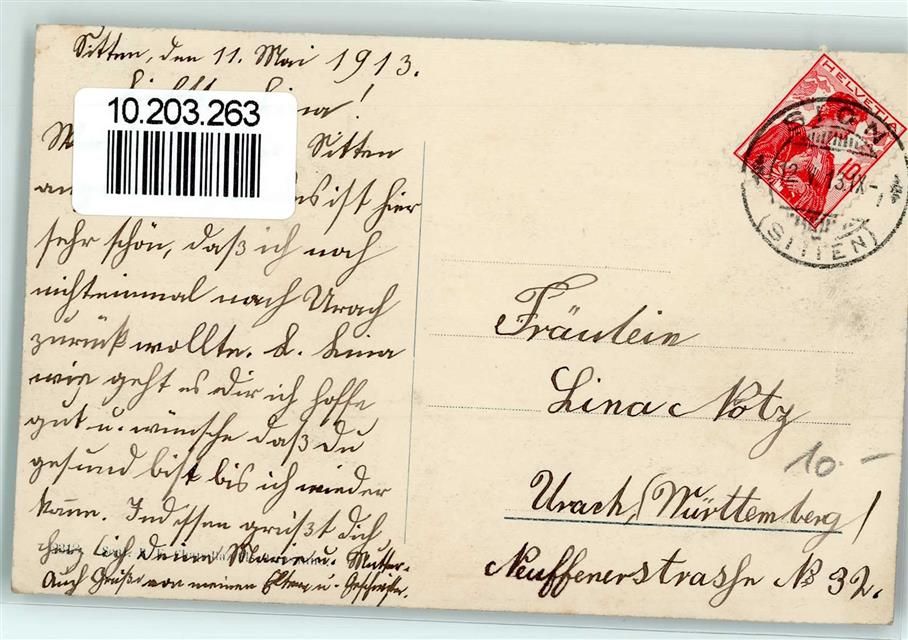 Sitten, den 11. Mai 1913.
Lina!
10.203.263
Sitten
es ist hier
sehr schön, daß ich noch
nicht einmal nach Urach
zurück wollte. L. Lina
wie geht es Dir ich hoffe
gut u. wünsche daß Du
gesund bist bis ich wieder
komm. Indessen grüßt Dich
herzlich Deine Marie u. Mutter.
Auch Grüße von meinen Eltern u. Geschwister.
HELVETIA
10
SION
(SITTEN)
Fräulein
Lina Notz
10.-
Urach (Württemberg)
Neuffenerstrasse No 32.